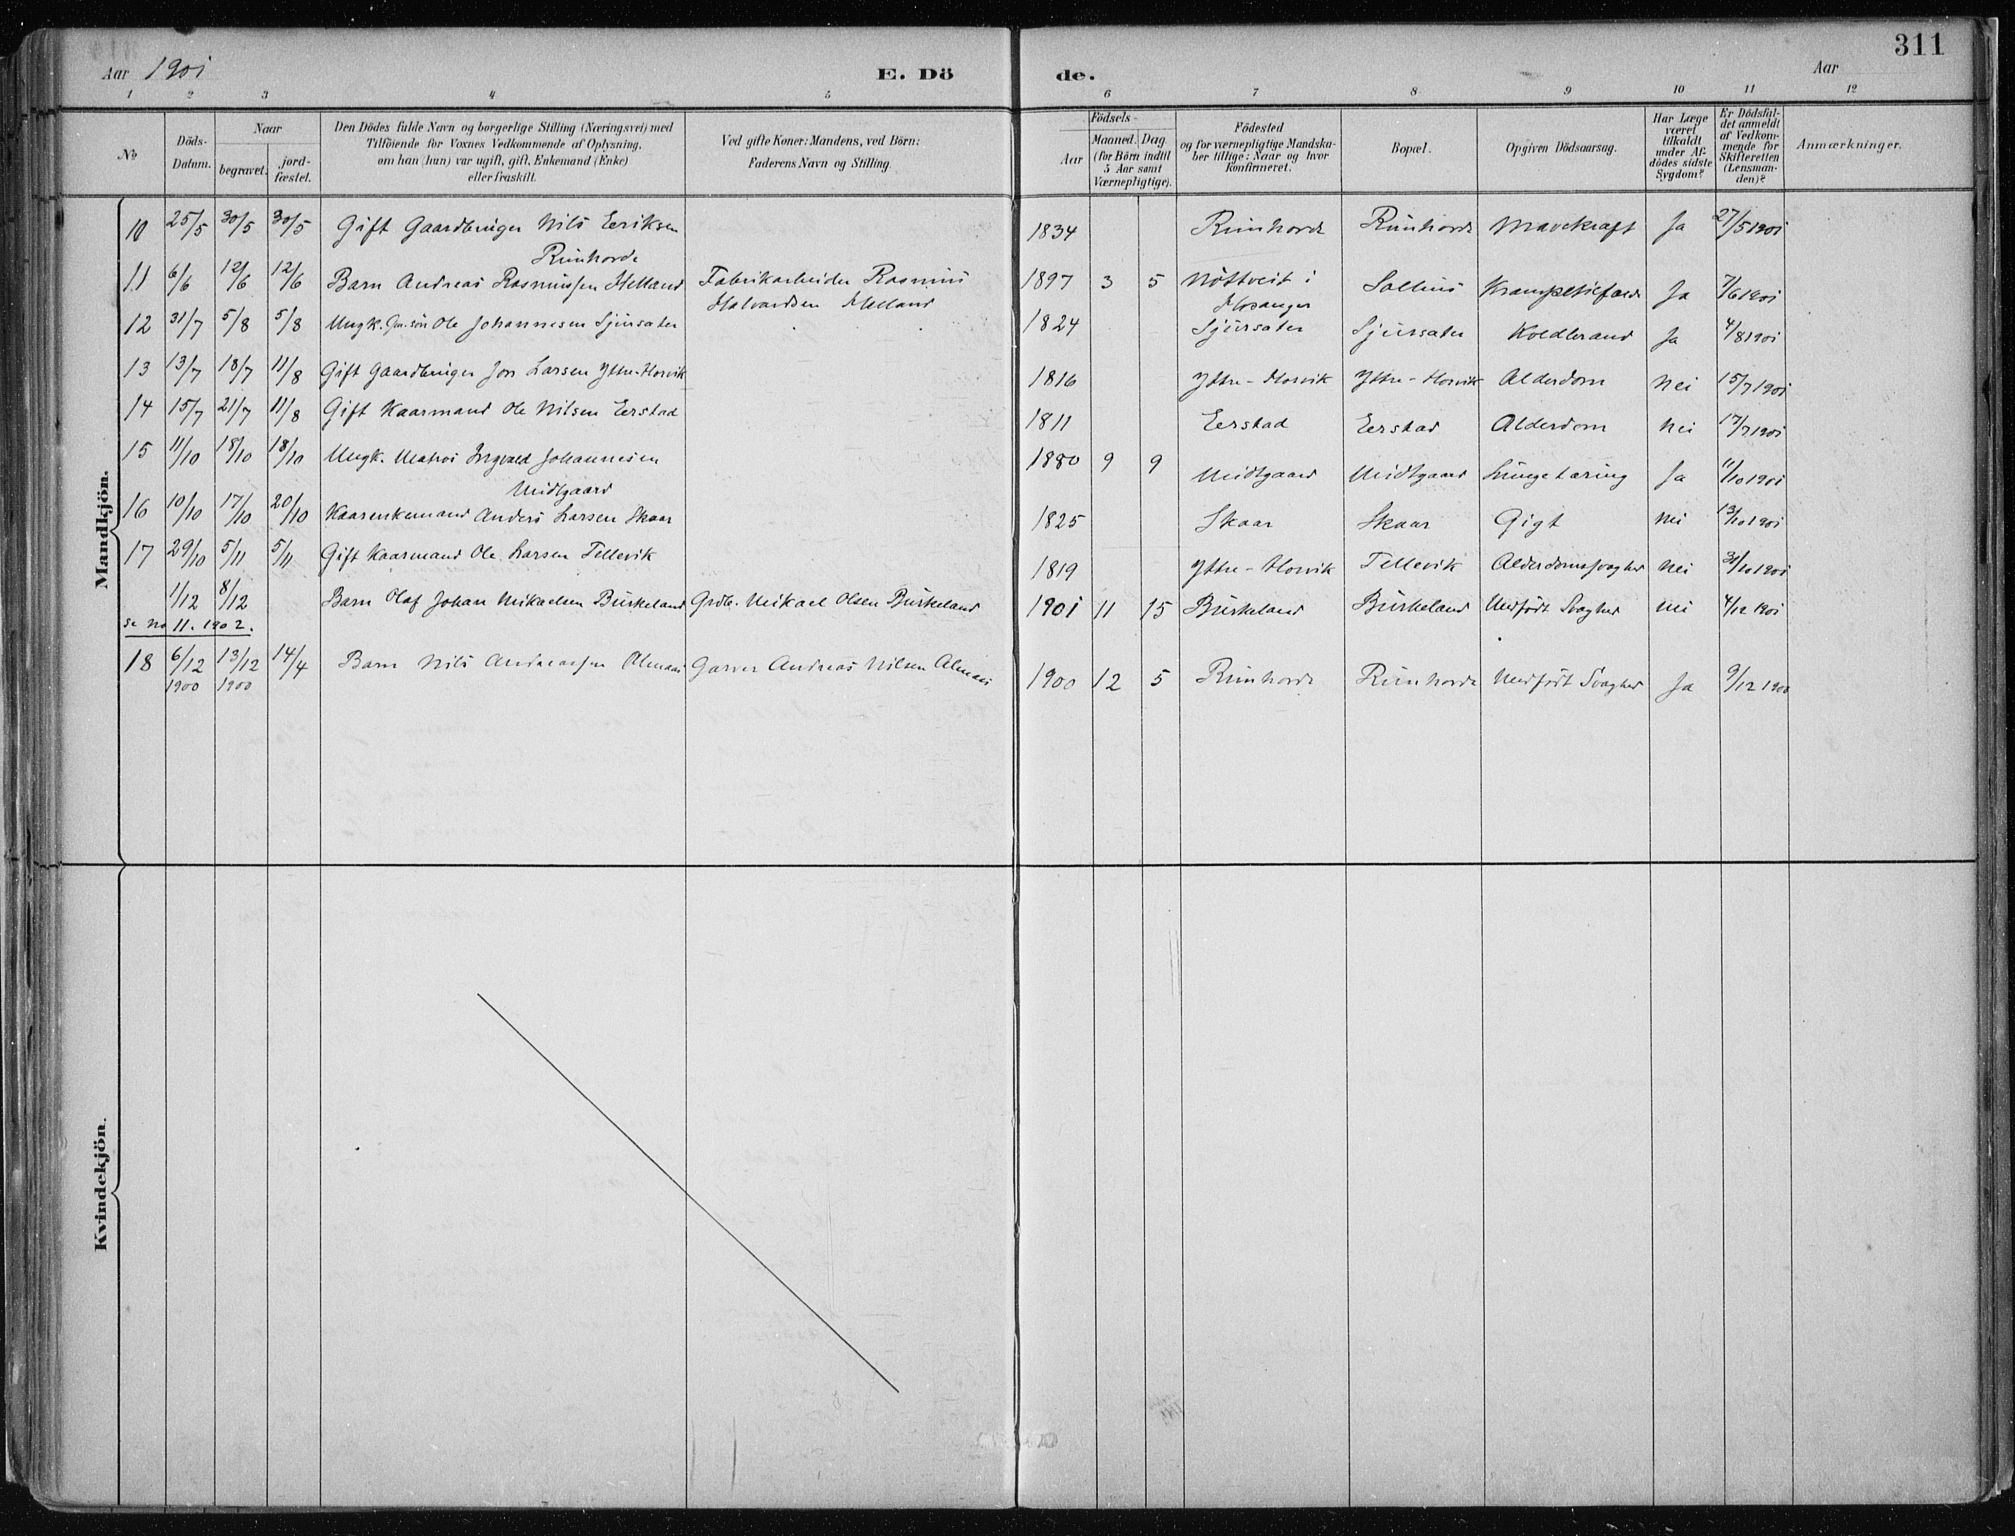 311
Aar 1901 E. Dö de. Aar
1 2 3 4 5 6 7 8 9 10 11 12
No
Döds-Datum.
Naar
begravet.
jord-fæstet.
Den Dödes fulde Navn og borgerlige Stilling (Næringsvei) med
Tilföiende for Voxnes Vedkommende af Oplysning,
om han (hun) var ugift, gift, Enkemand (Enke)
eller fraskilt.
Ved gifte Koner: Mandens, ved Börn:
Faderens Navn og Stilling.
Födsels-
Aar
Maaned. Dag.
(for Börn indtil
5 Aar samt
Værnepligtige).
Födested
og for værnepligtige Mandska-
ber tillige: Naar og hvor
konfirmeret.
Bopæl.
Opgiven Dödsaarsag.
Har Læge
været
tilkaldt
under Af-
dödes sidste
Sygdom?
Er Dödsfal-
det anmeldt
af Vedkom-
mende for
Skifteretten
(Lensman-
den)?
Anmærkninger.
Mandkjön.
10 25/5 30/5 30/5 Gift Gaardbruger Nils Eeriksen 1834 Rimhorde Rimhorde Mavekræft Ja 27/5 1901
Rimhorde
11 6/6 12/6 12/6 Barn Andreas Rasmussen Helland Fabrikarbeider Rasmus 1897 3 5 Nöttveit i Salhus Ja 7/6 1901
Halvardsen Helland Hosanger
12 31/7 5/8 5/8 Ungk. Ole Johannesen Sjursæter 1824 Sjursæter Sjursæter Koldbrand Ja 4/8 1901
13 13/7 18/7 11/8 Gift Gaardbruger Jon Larsen Ytre-Horvik 1816 Ytre-Horvik Ytre-Horvik Alderdom Nei 15/7 1901
14 15/7 21/7 11/8 Gift Kaarmand Ole Nilsen Eerstad 1811 Eerstad Eerstad Alderdom Nei 17/7 1901
15 11/10 18/10 18/10 Ungk. Matros Ingvald Johannesen 1880 9 9 Midtgaard Midtgaard Lungetæring Ja 11/10 1901
Midtgaard
16 10/10 17/10 20/10 Kaarenkemand Anders Larsen Skaar 1825 Skaar Skaar Gigt Nei 13/10 1901
17 29/10 5/11 5/11 Gift Kaarmand Ole Larsen Tellevik 1819 Ytre-Horvik Tellevik Alderdomssvaghed Nei 31/10 1901
1/12 8/12 Barn Olaf Johan Mikaelsen Birkeland Grdb. Mikael Olsen Birkeland 1901 11 15 Birkeland Birkeland Medfödt Svaghed Nei 4/12 1901
se no 11. 1902.
18 6/12 13/12 14/4 Barn Nils Andreassen Almaas Garver Andreas Nilsen Almaas 1900 12 5 Rimhorde Rimhorde Medfödt Svaghed Ja 9/12 1900
1900 1900
Kvindekjön.